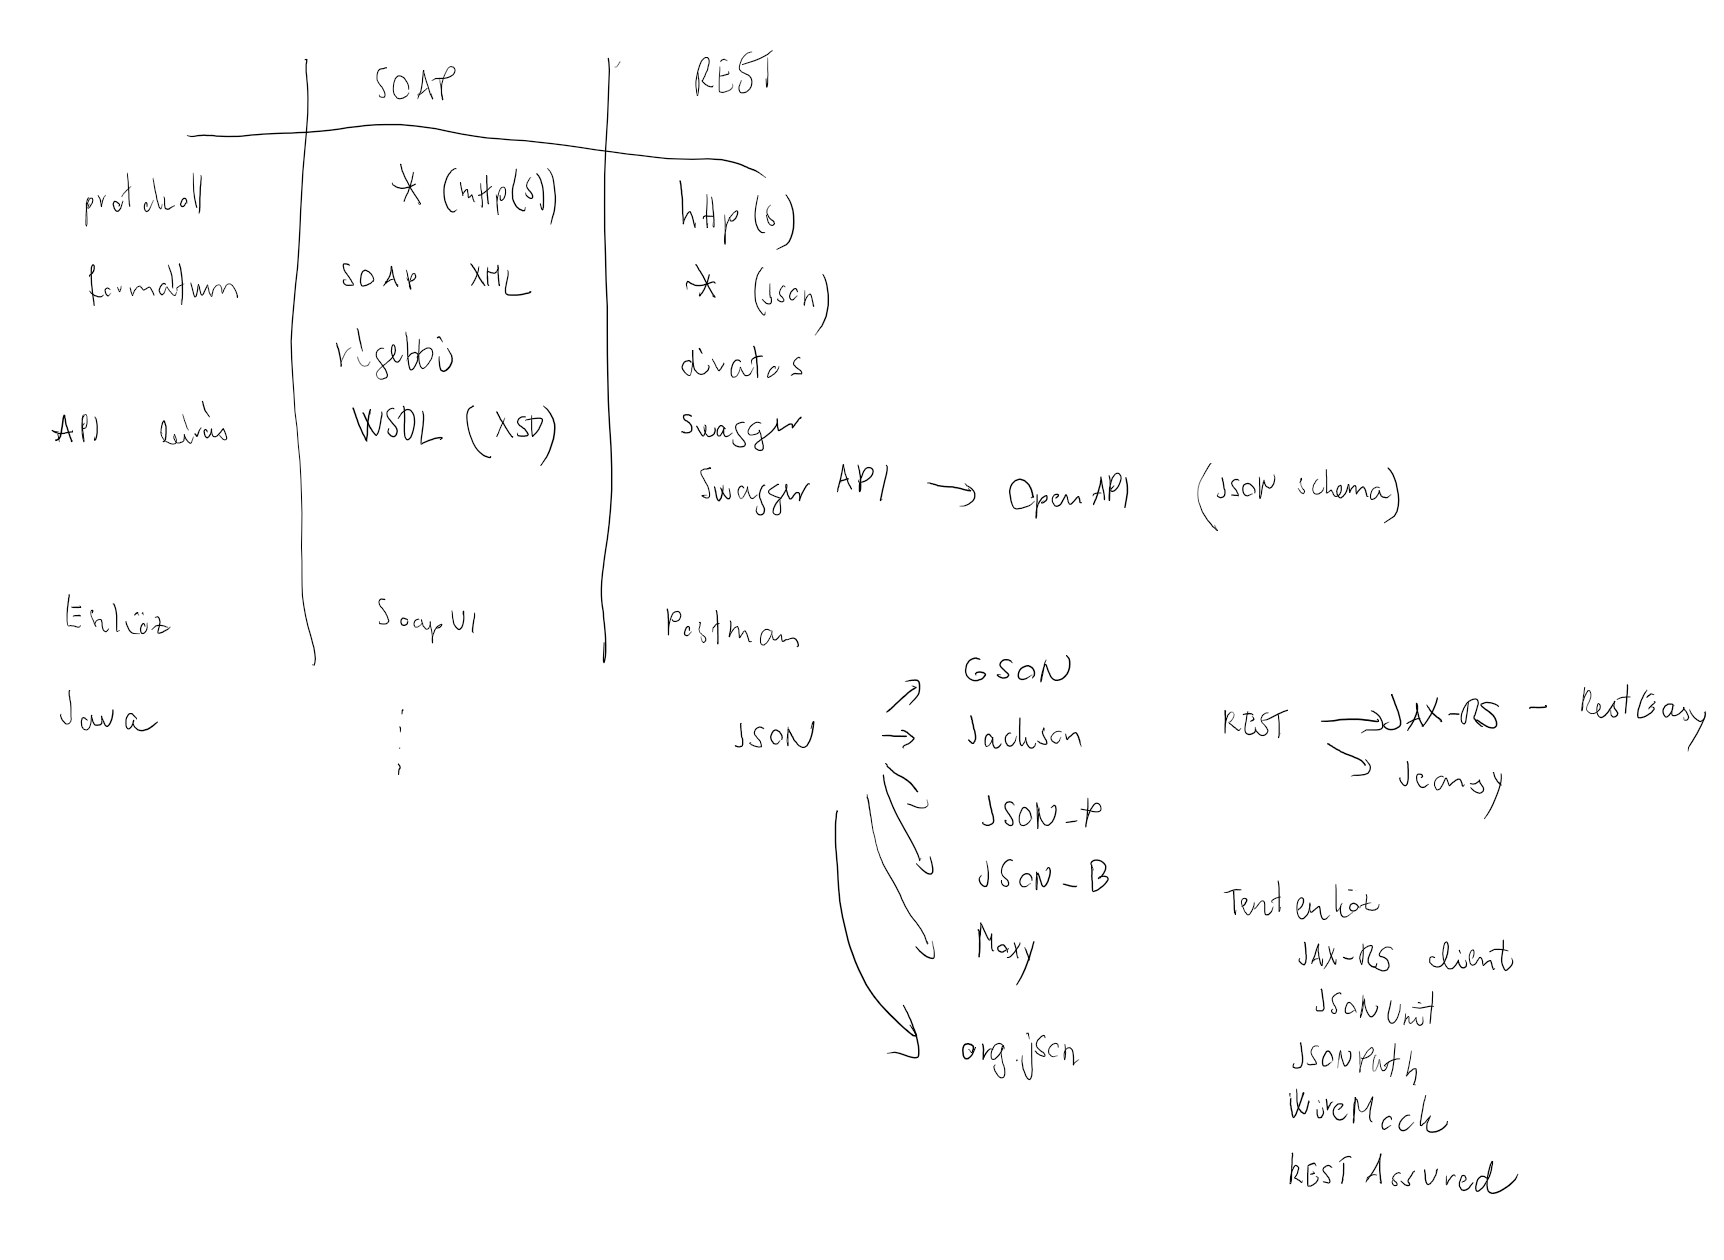 SOAP REST
protokoll * (http(s)) http(s)
formátum SOAP XML * (json)
régebbi divatos
API leírás WSDL (XSD) Swagger
Swagger API → OpenAPI (JSON schema)
Eszköz SoapUI Postman
Java
JSON → GSON
→ Jackson
→ JSON-P
→ JSON-B
→ Moxy
→ org.json
REST → JAX-RS - RestEasy
Teszt eszköz
JAX-RS client
JSONUnit
JSONPath
WireMock
REST Assured